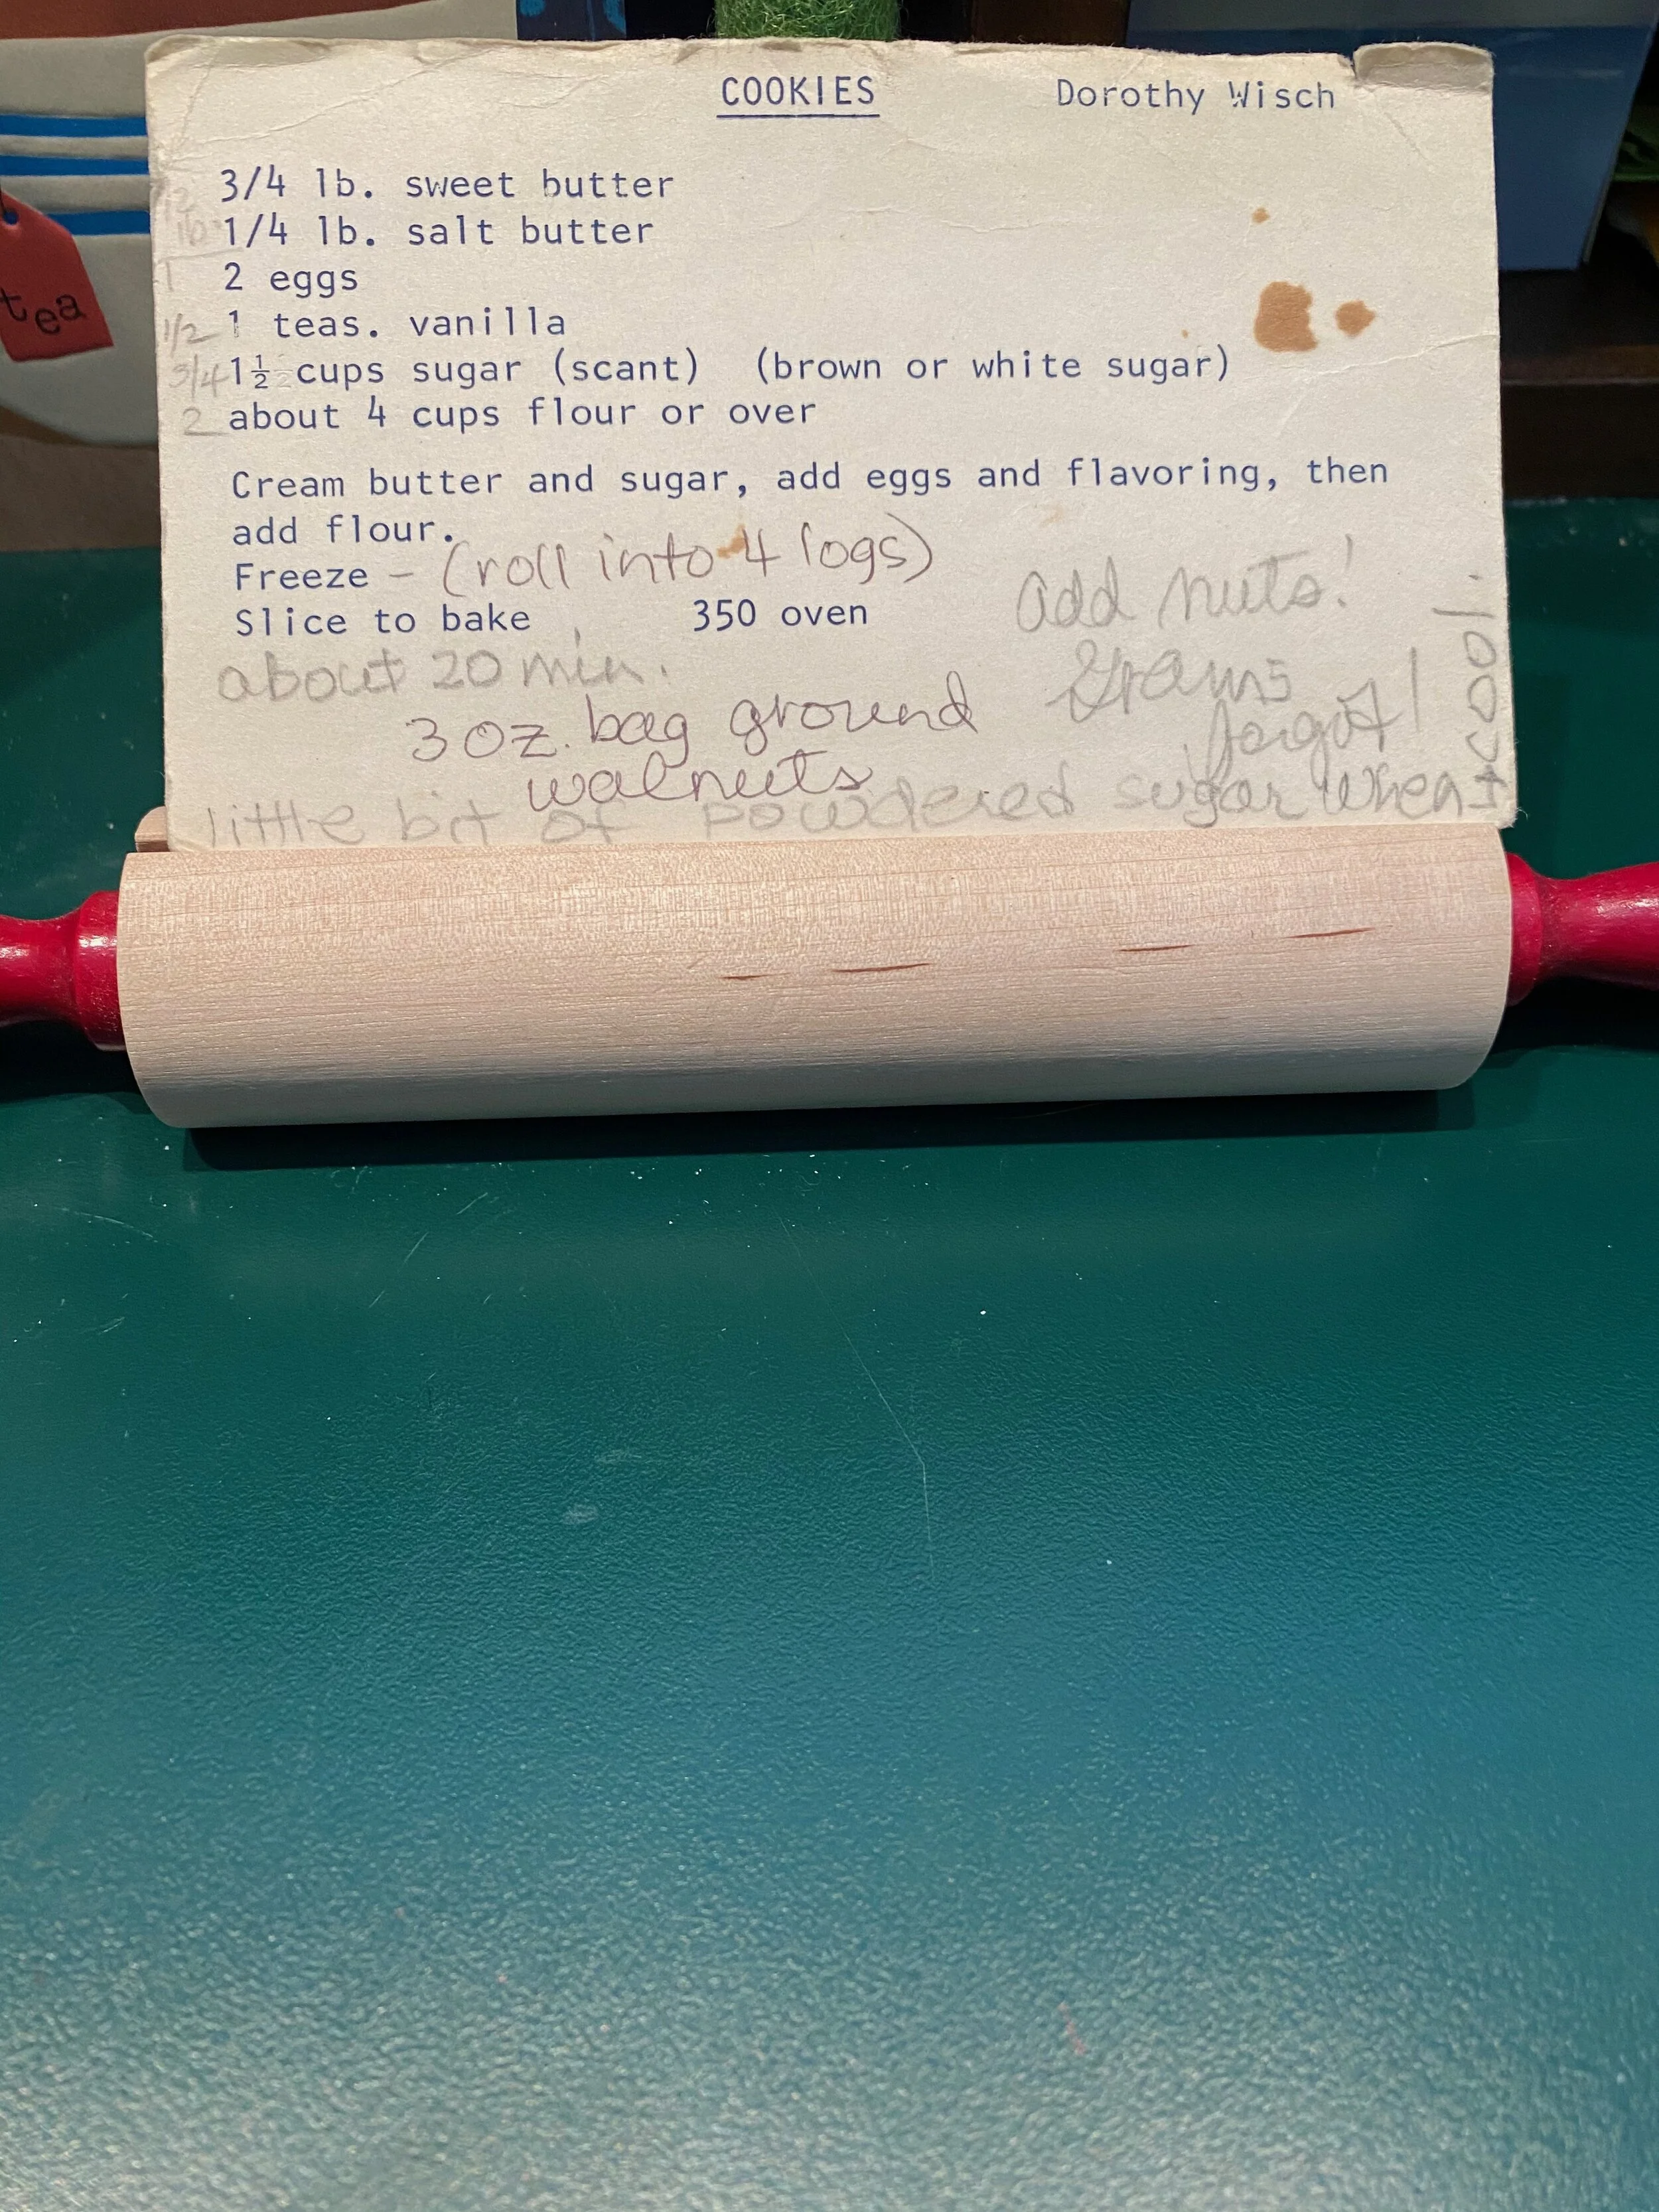 COOKIES Dorothy Wisch
3/4 lb. sweet butter
1/4 lb. salt butter
1 2 eggs
1/2 1 teas. vanilla
3/4 1½ cups sugar (scant) (brown or white sugar)
2 about 4 cups flour or over
Cream butter and sugar, add eggs and flavoring, then
add flour.
Freeze - (roll into 4 logs)
Slice to bake 350 oven
about 20 min.
add nuts!
Grams
forgot!
3 oz. bag ground
walnuts
little bit of powdered sugar when
cool!
tea